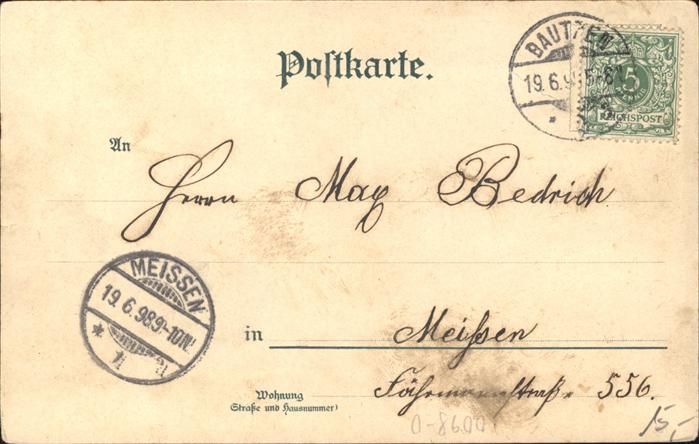 Postkarte.
BAUTZEN
19.6.98
5
REICHSPOST
An
Herrn Max Bedrich
MEISSEN
19.6.98.9-10N.
in Meissen
Wohnung
(Straße und Hausnummer)
556.
0-8600
15,-